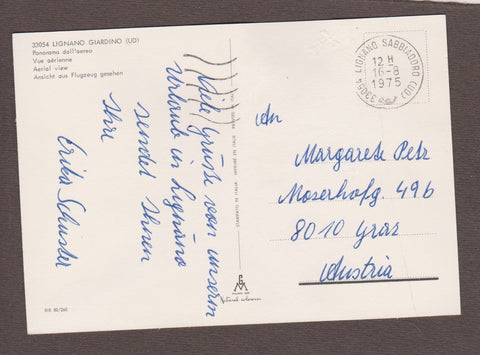 33054 LIGNANO GIARDINO (UD)
Panorama dall'aereo
Vue aérienne
Aerial view
Ansicht aus Flugzeug gesehen
Viele Grüsse von unserm
Urlaub in Lignano
sendet Ihnen
Ihre
Erika Schuster
33054 LIGNANO SABBIADORO (UD)
12 H
16-8
1975
An
Margarete Petz
Moserhofg. 49b
8010 Graz
Austria
STAMPATO IN ITALIA